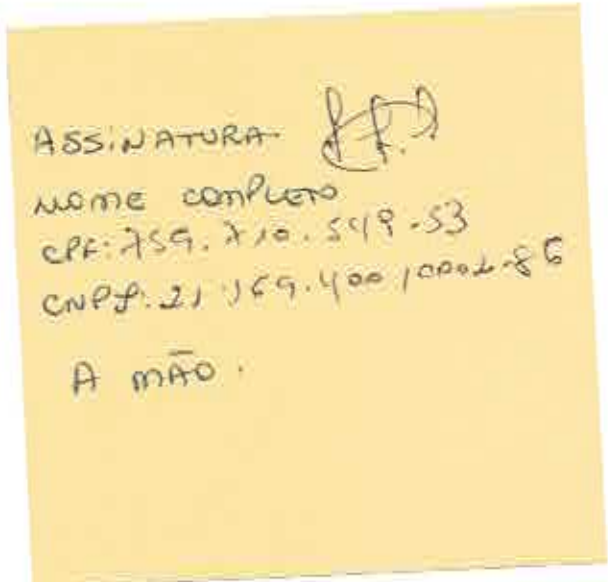 ASSINATURA
NOME COMPLETO
CPF: 759.710.549-53
CNPJ: 21.169.400/0001-86
A MÃO.